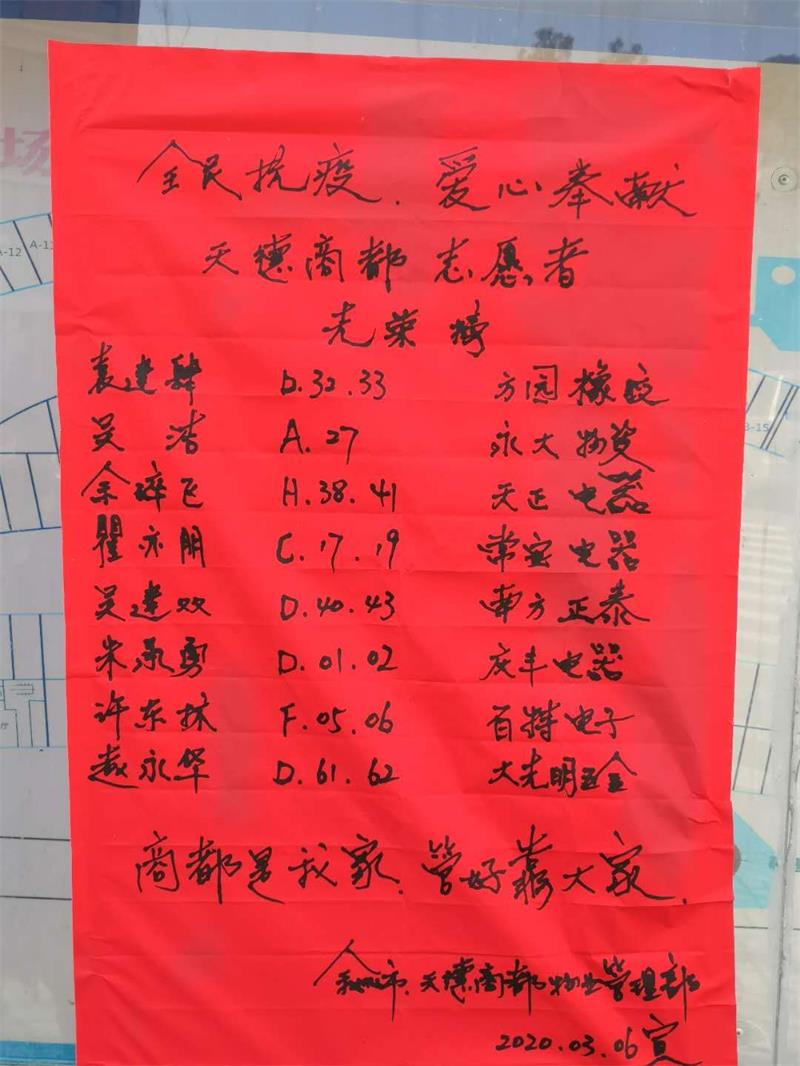 全民抗疫.爱心奉献
天德商都志愿者
光荣榜
袁建肆 D.32.33 方园橡胶
吴浩 A.27 永大物资
余碎飞 H.38.41 天正电器
瞿亦朋 C.17.19 常安电器
吴建双 D.40.43 南方正泰
朱承勇 D.01.02 庆丰电器
许东 F.05.06 百特电子
赵永华 D.61.62 大光明五金
商都是我家.管好靠大家.
市.天德商都物业管理部
2020.03.06宣
场
A-12
A-1
B-15